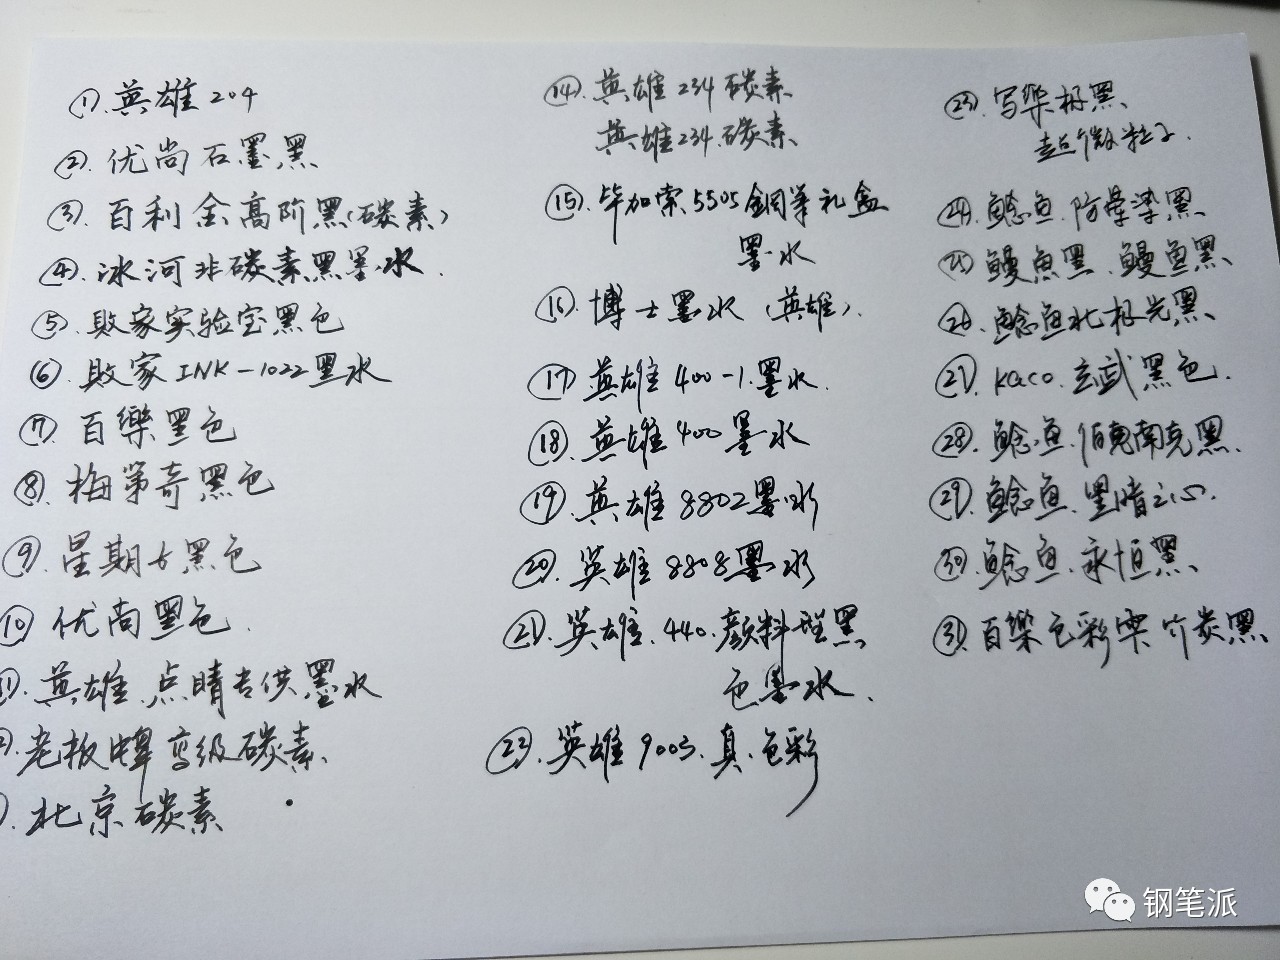 ①.英雄204
②.优尚石墨黑
③.百利金高阶黑(碳素)
④.冰河非碳素黑墨水.
⑤.败家实验室黑色
⑥.败家INK-1022墨水
⑦.百樂黑色
⑧.梅第奇黑色
⑨.星期六黑色
⑩优尚黑色.
英雄.点睛专供墨水
老板牌高级碳素.
北京碳素
⑭.英雄234碳素
英雄234.碳素
⑮.毕加索5505鋼筆礼盒
墨水
⑯.博士墨水(英雄).
⑰.英雄400-1.墨水.
⑱.英雄400墨水
⑲.英雄8802墨水
⑳.英雄8808墨水
㉑.英雄.440.颜料型黑
色墨水.
㉒.英雄9003.真.色彩
㉓.写樂极黑
超微粒子.
㉔.鲶鱼.防晕染黑
㉕.鳗魚黑.鳗鱼黑
㉖.鲶鱼北极光黑
㉗.kaco.玄武黑色.
㉘.鲶鱼.伯克南克黑.
㉙.鲶鱼.黑暗之心.
㉚.鲶鱼.永恒黑
㉛.百樂色彩雫竹炭黑
钢笔派